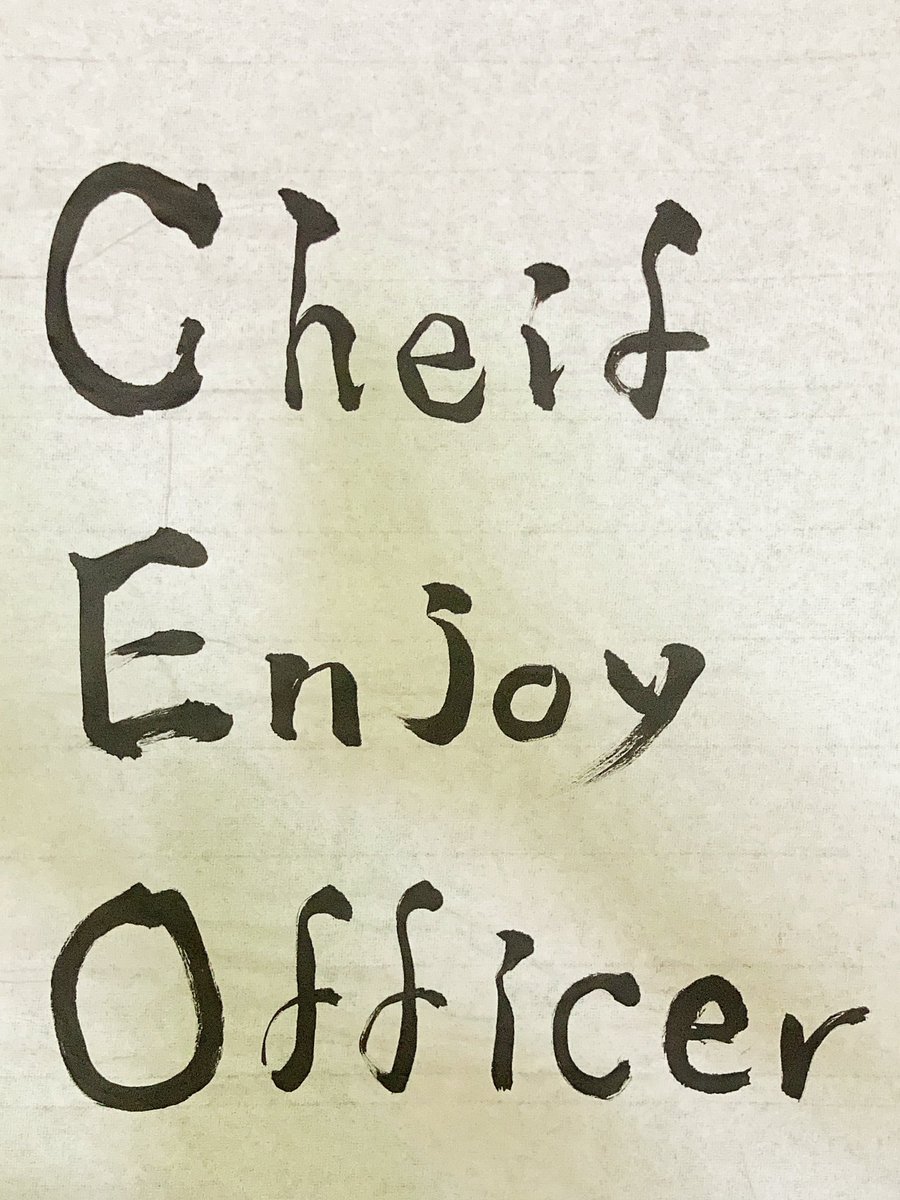 Cheif
Enjoy
Officer